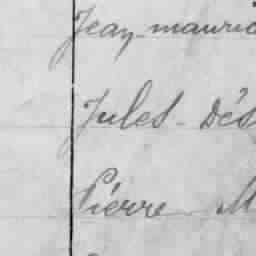 Jean-mauric
Jules-Dés
Pierre M